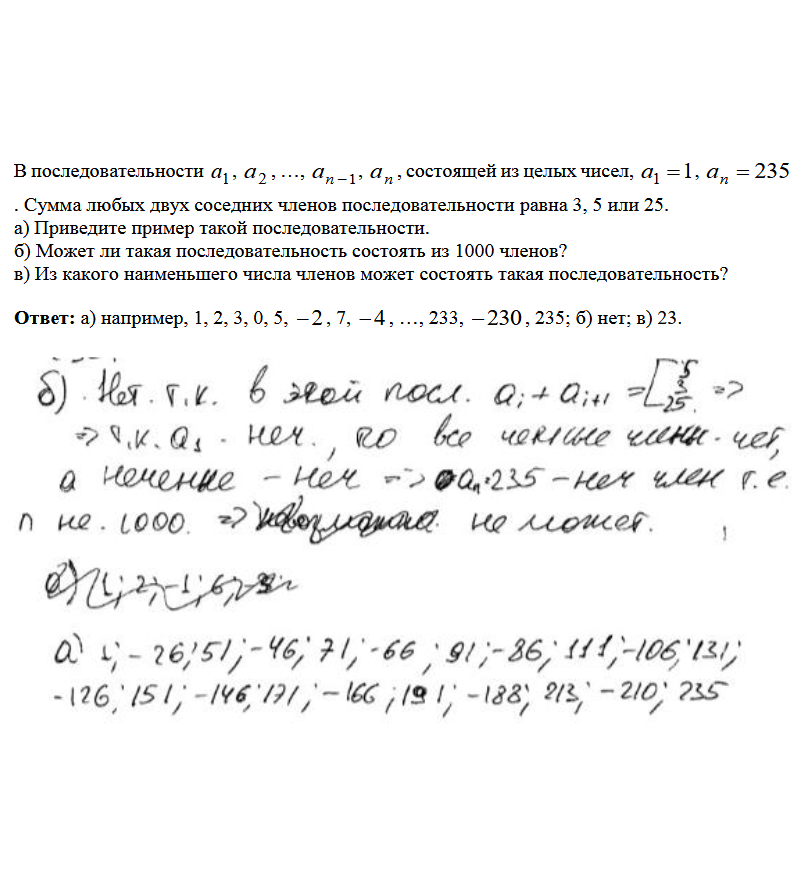 В последовательности a₁, a₂, ..., aₙ₋₁, aₙ, состоящей из целых чисел, a₁ = 1, aₙ = 235
. Сумма любых двух соседних членов последовательности равна 3, 5 или 25.
а) Приведите пример такой последовательности.
б) Может ли такая последовательность состоять из 1000 членов?
в) Из какого наименьшего числа членов может состоять такая последовательность?
Ответ: а) например, 1, 2, 3, 0, 5, −2, 7, −4, ..., 233, −230, 235; б) нет; в) 23.
б) Нет. т.к. в этой посл. aᵢ + aᵢ₊₁ = [5 3 25. =>
=> т.к. a₁ - неч., то все четные члены - чет,
а нечетные - неч => aₙ = 235 - неч член т.е.
n не. 1000. => не может.
а) 1; -26; 51; -46; 71; -66; 91; -86; 111; -106; 131;
-126; 151; -146; 171; -166; 191; -188; 213; -210; 235